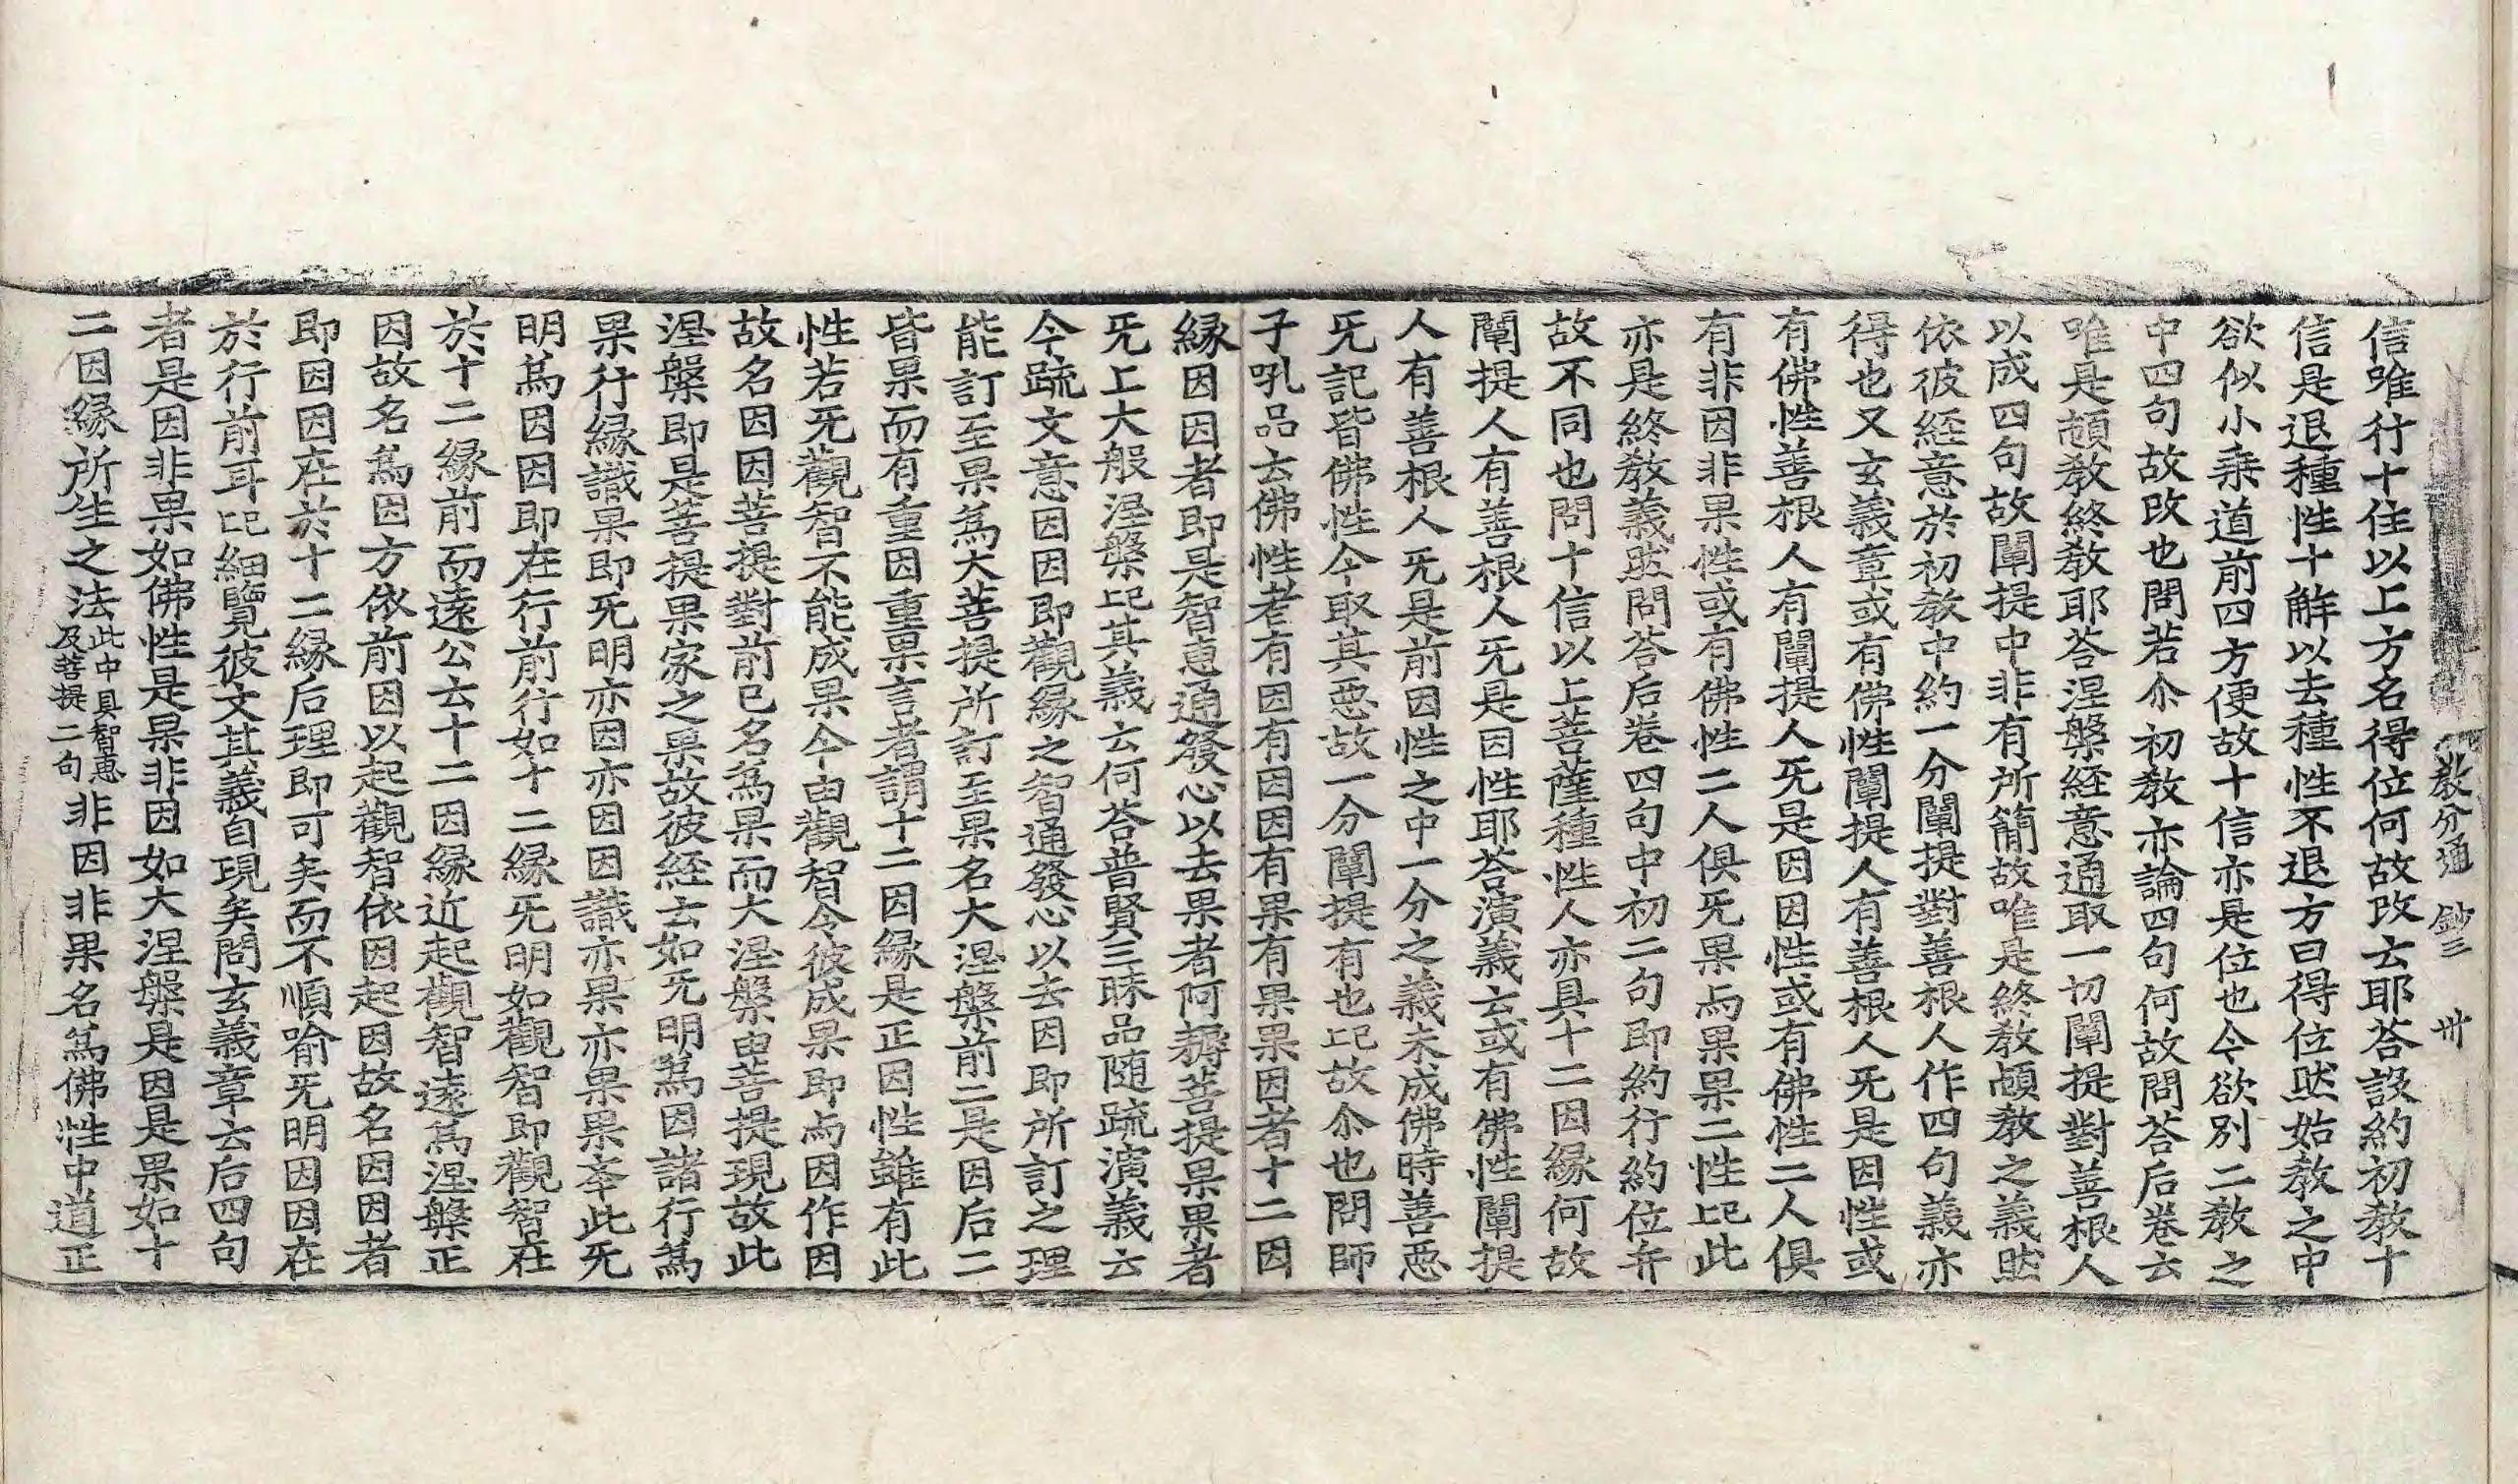 教分通 鈔三 卅
信唯行十住以上方名得位何故改云耶荅設約初教十
信是退種性十解以去種性不退方曰得位然始教之中
欲似小乗道前四方便故十信亦是位也今欲別二教之
中四句故改也問若尒初教亦論四句何故問荅后卷云
唯是頓教終教耶荅涅槃経意通取一切闡提對善根人
以成四句故闡提中非有所簡故唯是終教頓教之義然
依彼経意於初教中約一分闡提對善根人作四句義亦
得也又玄義章或有佛性闡提人有善根人旡是因性或
有佛性善根人有闡提人旡是因因性或有佛性二人俱
有非因非果性或有佛性二人俱旡果与果果二性記此
亦是終教義然問荅后卷四句中初二句即約行約位弁
故不同也問十信以上菩薩種性人亦具十二因縁何故
闡提人有善根人旡是因性耶荅演義云或有佛性闡提
人有善根人旡是前因性之中一分之義未成佛時善悪
旡記皆佛性今取其悪故一分闡提有也記故尒也問師
子吼品云佛性者有因有因因有果有果果因者十二因
縁因因者即是智恵通發心以去果者阿耨菩提果果者
旡上大般涅槃記其義云何荅普賢三昧品随疏演義云
今疏文意因因即觀縁之智通發心以去因即所訂之理
能訂至果為大菩提所訂至果名大涅槃前二是因后二
皆果而有重因重果言者謂十二因縁是正因性雖有此
性若旡觀智不能成果今由觀智令彼成果即与因作因
故名因因菩提對前已名為果而大涅槃由菩提現故此
涅槃即是菩提果家之果故彼経云如旡明為因諸行為
果行縁識果即旡明亦因亦因因識亦果亦果果峯此旡
明為因因即在行前行如十二縁旡明如觀智即觀智在
於十二縁前而遠公云十二因縁近起觀智遠為涅槃正
因故名為因方依前因以起觀智依因起因故名因因者
即因因在於十二縁后理即可矣而不順喻旡明因因在
於行前耳記細覽彼文其義自現矣問玄義章云后四句
者是因非果如佛性是果非因如大涅槃是因是果如十
二因縁所生之法此中具智恵及菩提二句非因非果名為佛性中道正